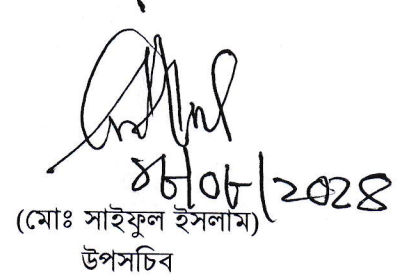 ১৮/০৮/২০২৪
(মোঃ সাইফুল ইসলাম)
উপসচিব